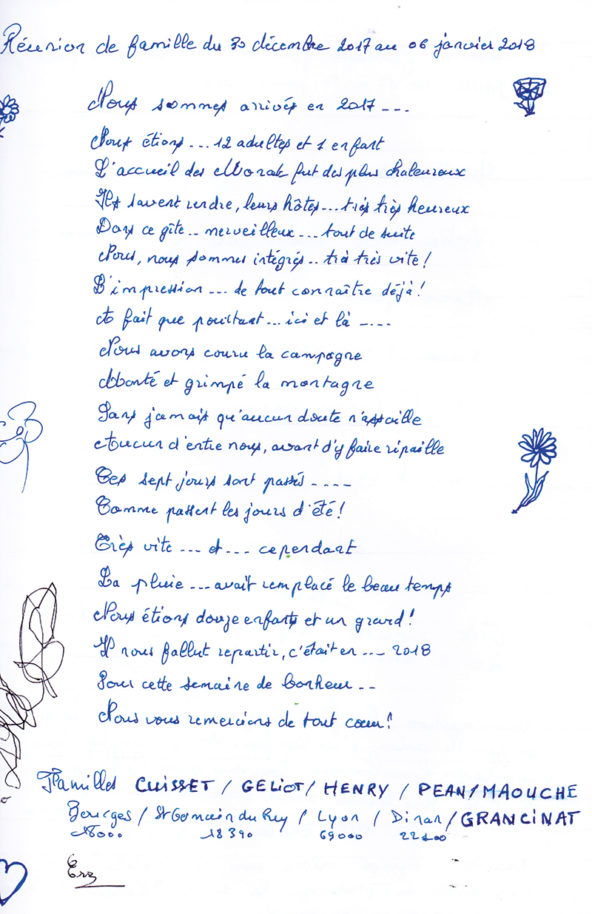 Réunion de famille du 30 décembre 2017 au 06 janvier 2018
Nous sommes arrivés en 2017 ---
Nous étions ... 12 adultes et 1 enfant
L'accueil des Morak fut des plus chaleureux
Ils savent rendre, leurs hôtes ... très très heureux
Dans ce gîte .. merveilleux ... tout de suite
Nous, nous sommes intégrés .. très très vite !
L'impression ... de tout connaître déjà !
A fait que pourtant ... ici et là ----
Nous avons couru la campagne
Monté et grimpé la montagne
Sans jamais qu'aucun doute n'assaille
Aucun d'entre nous, avant d'y faire ripaille
Ces sept jours sont passés ----
Comme passent les jours d'été !
Très vite --- et --- cependant
La pluie --- avait remplacé le beau temps
Nous étions douze enfants et un grand !
Il nous fallut repartir, c'était en --- 2018
Pour cette semaine de bonheur --
Nous vous remercions de tout cœur !
Familles CUISSET / GELIOT / HENRY / PEAN / MAOUCHE
Bourges / St Germain du Puy / Lyon / Dinan / GRANCINAT
18000 18390 69000 22100